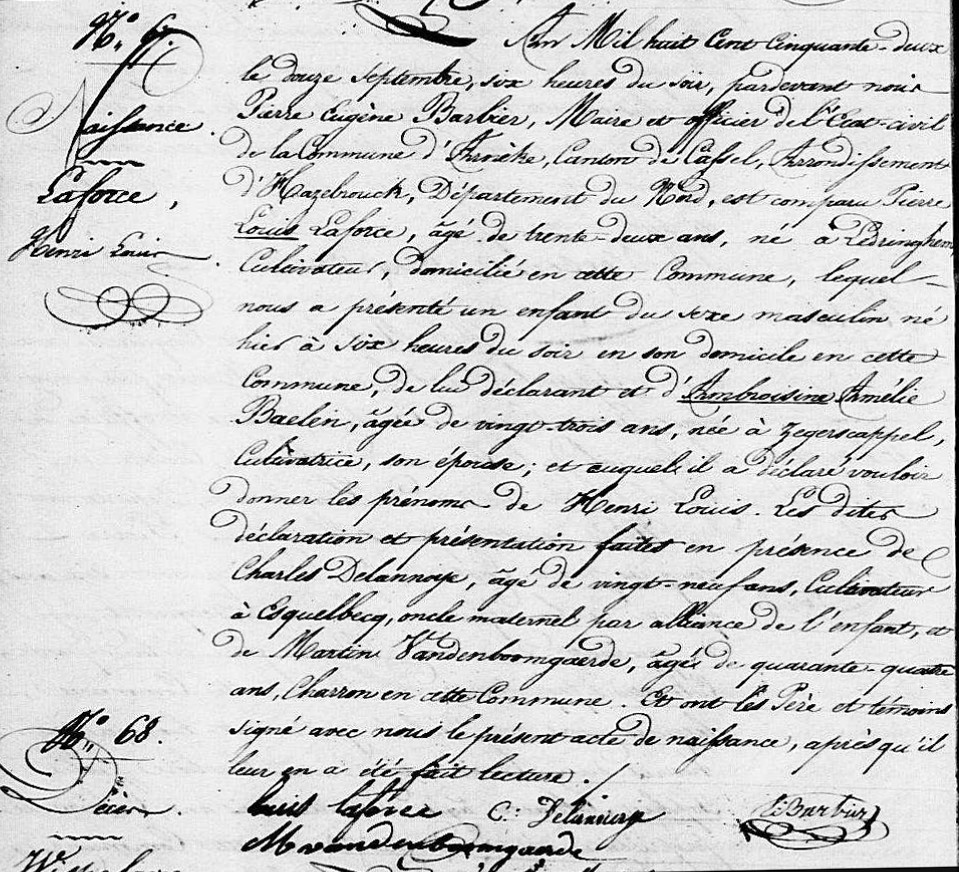 N.° 67.
Naissance
Laforce,
Henri Louis
An Mil huit Cent Cinquante-deux
le douze Septembre, six heures du soir, pardevant nous
Pierre Eugène Barbier, Maire et officier de l'Etat-civil
de la Commune d'Arnèke, Canton de Cassel, Arrondissement
d'Hazebrouck, Département du Nord, est comparu Pierre
Louis Laforce, âgé de trente-deux ans, né à Ledringhem,
Cultivateur, domicilié en cette Commune, lequel
nous a présenté un enfant du sexe masculin né
hier à six heures du soir en son domicile en cette
Commune, de lui déclarant et d'Ambroisine Amélie
Baelen, âgée de vingt trois ans, née à Zegerscappel,
Cultivatrice, son épouse; et auquel il a déclaré vouloir
donner les prénoms de Henri Louis. Les dites
déclaration et présentation faites en présence de
Charles Delannoye, âgé de vingt-neuf ans, Cultivateur
à Esquelbecq, oncle maternel par alliance de l'enfant, et
de Martin Vandenboomgaerde, âgé de quarante-quatre
ans, Charron en cette Commune. Et ont les Père et témoins
signé avec nous le présent acte de naissance, après qu'il
leur en a été fait lecture.
luis laforce C: Delannoye E Barbier
M vandenboomgaerde
N.° 68.
Décès